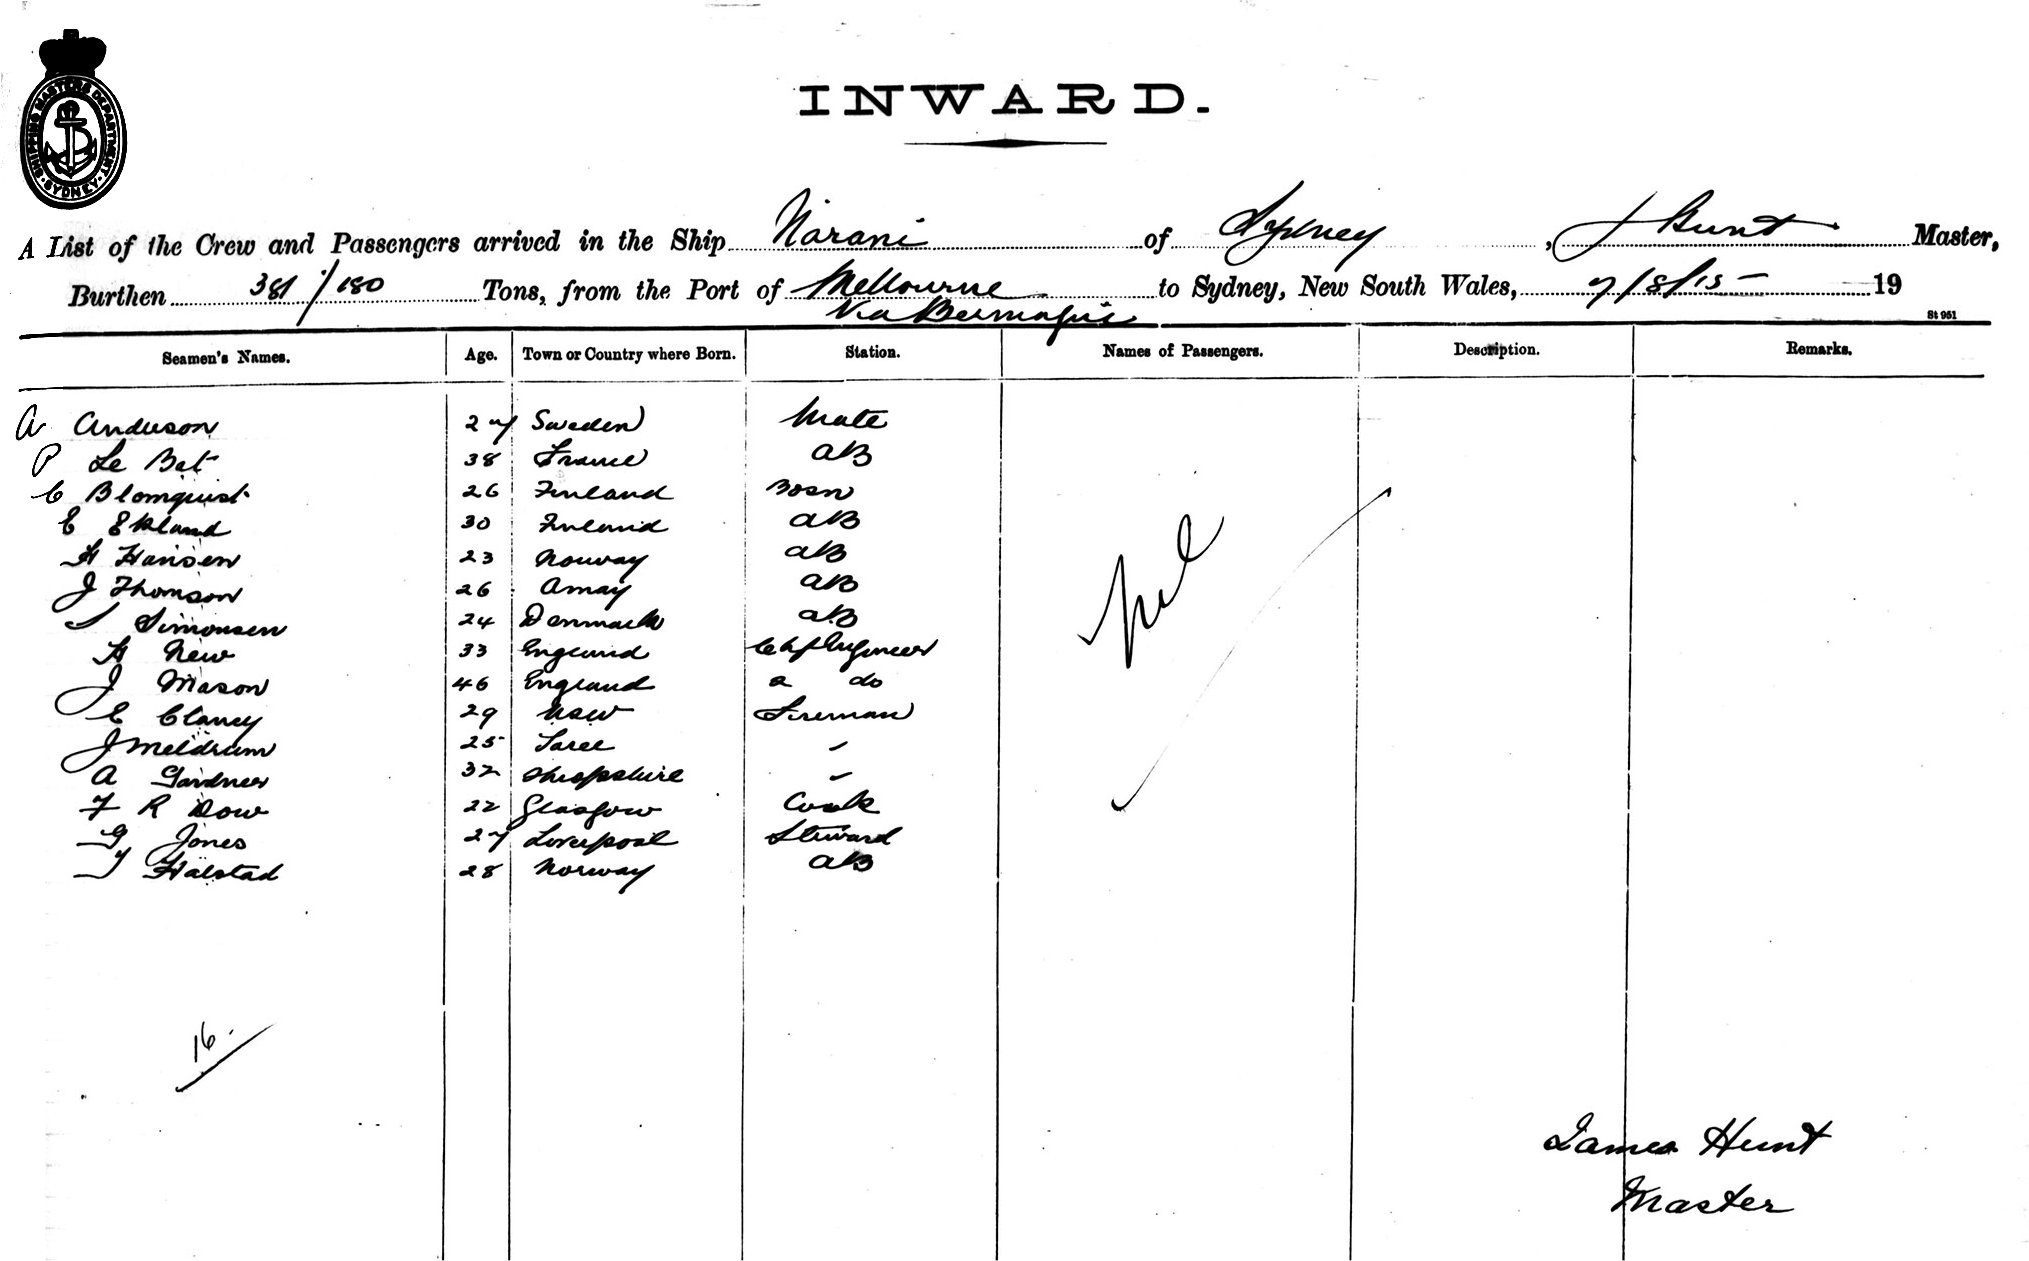 SHIPPING MASTERS DEPARTMENT
SYDNEY
INWARD.
A List of the Crew and Passengers arrived in the Ship Narani of Sydney, J Hunt Master,
Burthen 381/180 Tons, from the Port of Melbourne to Sydney, New South Wales, 7/8/15 19
Via Bermagui
St 951
Seamen's Names. Age. Town or Country where Born. Station. Names of Passengers. Description. Remarks.
A Anderson 27 Sweden Mate
P Le Bat 38 France AB
C Blomquist 26 Finland Bosn
E Ekland 30 Finland AB
H Hansen 23 Norway AB
J Thomson 26 AB
Simonsen 24 Denmark AB
H New 33 England Engineer
J Mason 46 England 2 do
C Clancy 29 NSW Fireman
J Meldrum 25 Taree
A Gardner 32 Shropshire
F R Dow 22 Glasgow Cook
G Jones 27 Liverpool Steward
Halstad 28 Norway AB
Nil
16
James Hunt
Master